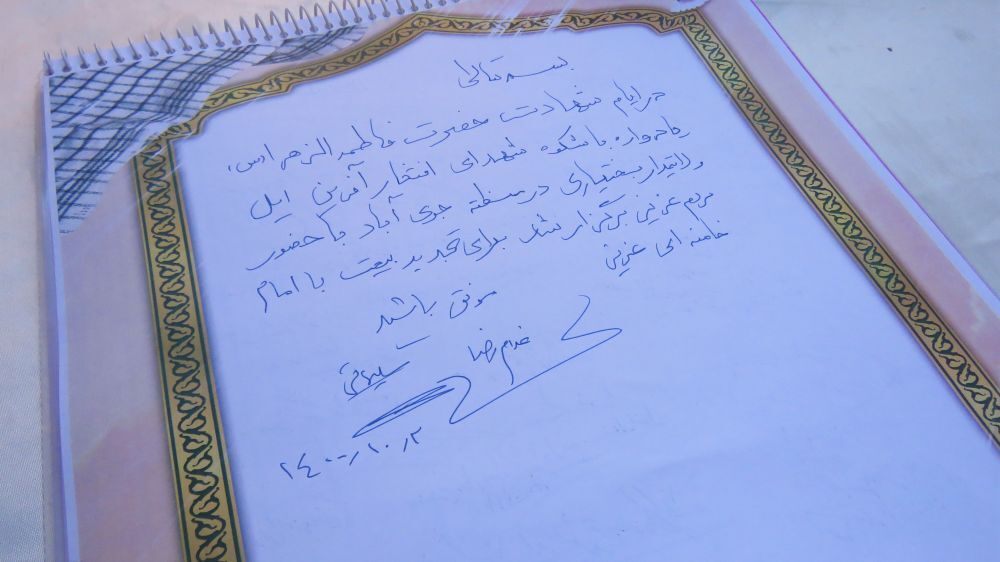 بسمه تعالی
در ایام شهادت حضرت فاطمه الزهرا (س)،
یادواره باشکوه شهدای افتخار آفرین ایل
ولایتمدار بختیاری در منطقه جری آباد با حضور
مردم عزیز برگزار شد. برای تجدید بیعت با امام
خامنه ای عزیز
موفق باشید
غلامرضا
سلیمانی
۱۴۰۰/۱۰/۲